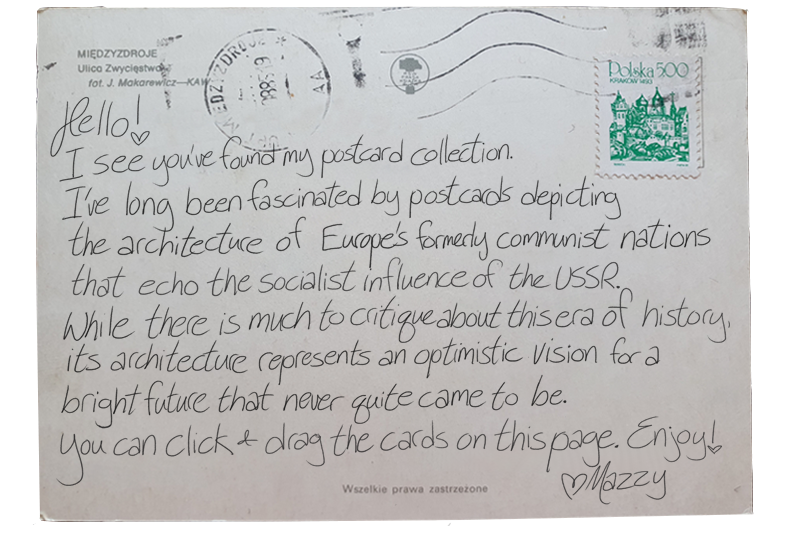 MIĘDZYZDROJE
Ulica Zwycięstwa
fot. J. Makarewicz—KAW
MIĘDZYZDROJE
AA
Polska 500
Hello!
I see you've found my postcard collection.
I've long been fascinated by postcards depicting
the architecture of Europe's formerly communist nations
that echo the socialist influence of the USSR.
While there is much to critique about this era of history,
its architecture represents an optimistic vision for a
bright future that never quite came to be.
You can click & drag the cards on this page. Enjoy!
♡Mazzy
Wszelkie prawa zastrzeżone